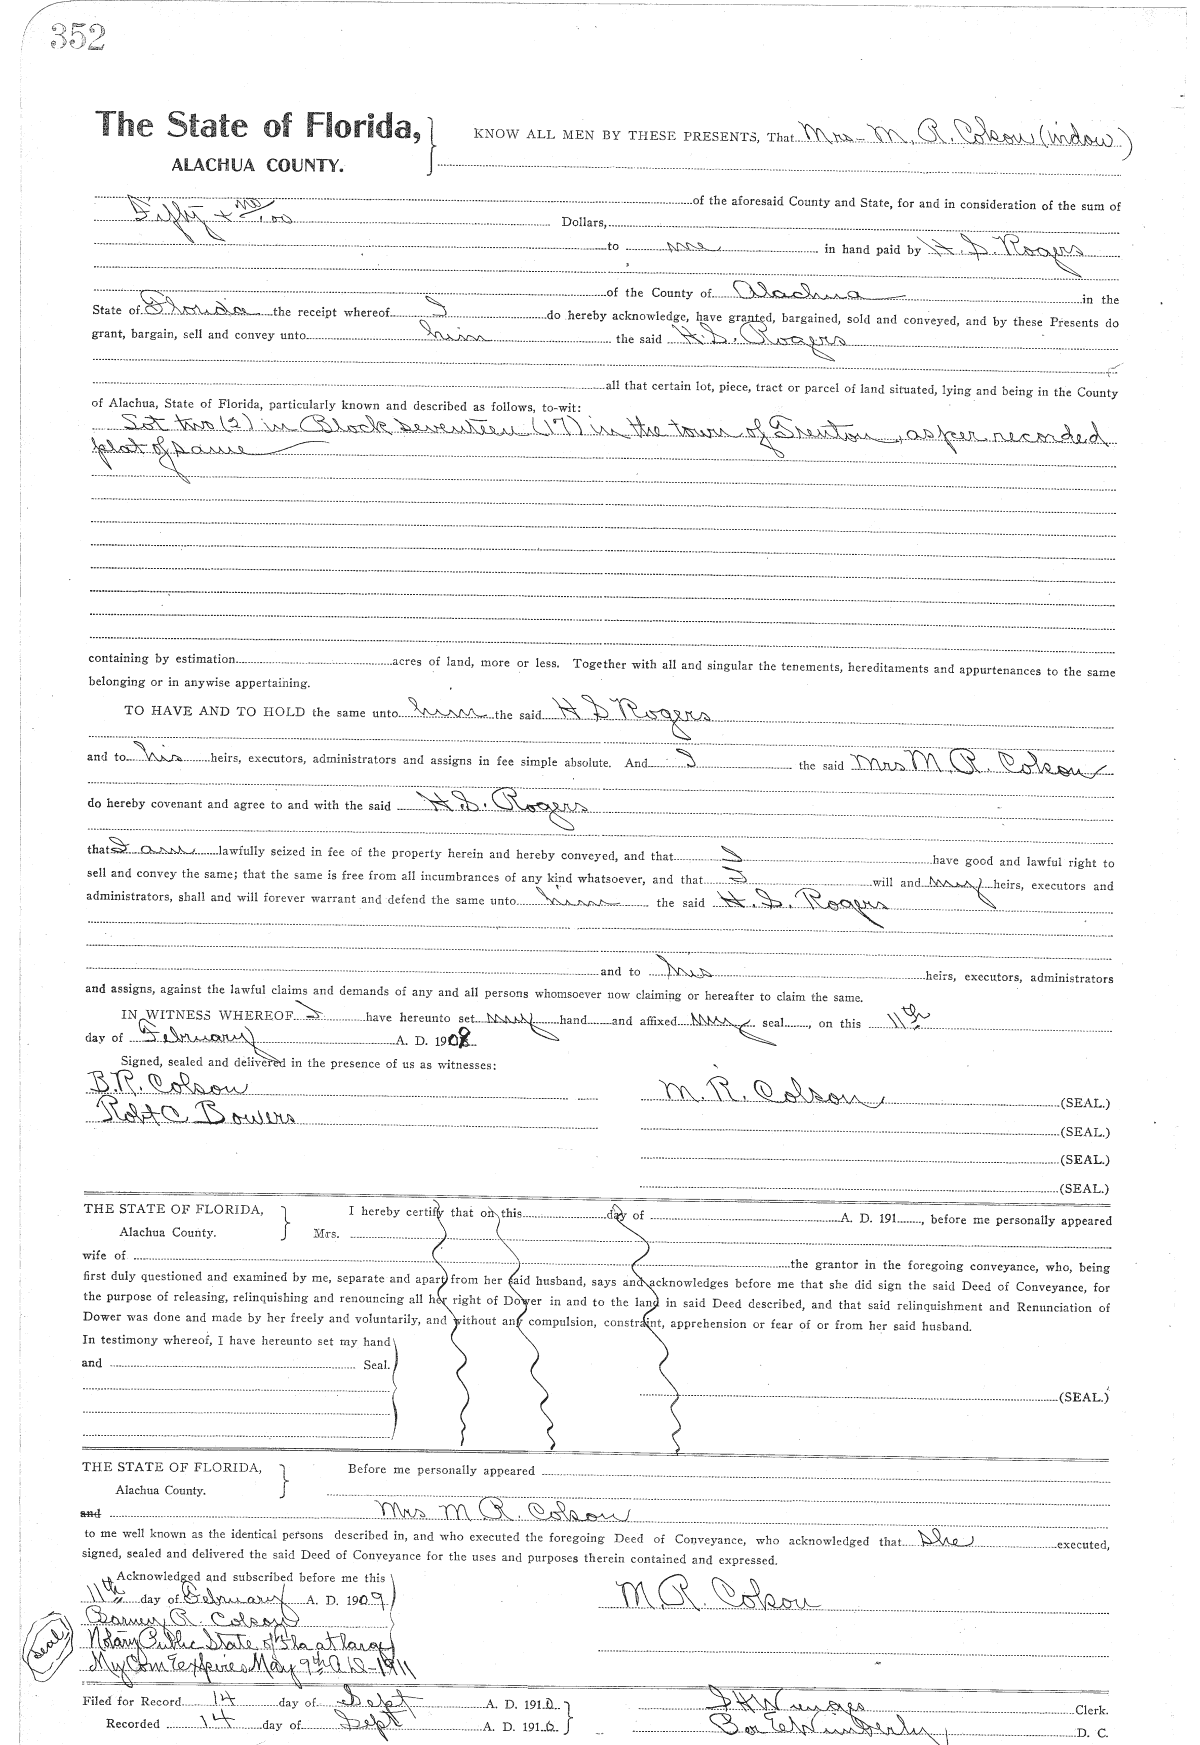 352
The State of Florida,
ALACHUA COUNTY.
KNOW ALL MEN BY THESE PRESENTS, That Mrs M. R. Colson (widow)
of the aforesaid County and State, for and in consideration of the sum of
Fifty + no/100 Dollars,
to me in hand paid by H. S. Rogers
of the County of Alachua in the
State of Florida the receipt whereof I do hereby acknowledge, have granted, bargained, sold and conveyed, and by these Presents do
grant, bargain, sell and convey unto him the said H. S. Rogers
all that certain lot, piece, tract or parcel of land situated, lying and being in the County
of Alachua, State of Florida, particularly known and described as follows, to-wit:
Lot two (2) in Block seventeen (17) in the town of Trenton, as per recorded
plat of same
containing by estimation acres of land, more or less. Together with all and singular the tenements, hereditaments and appurtenances to the same
belonging or in anywise appertaining.
TO HAVE AND TO HOLD the same unto him the said H S Rogers
and to his heirs, executors, administrators and assigns in fee simple absolute. And I the said Mrs M. R. Colson
do hereby covenant and agree to and with the said H. S. Rogers
that I am lawfully seized in fee of the property herein and hereby conveyed, and that I have good and lawful right to
sell and convey the same; that the same is free from all incumbrances of any kind whatsoever, and that I will and my heirs, executors and
administrators, shall and will forever warrant and defend the same unto him the said H. S. Rogers
and to his heirs, executors, administrators
and assigns, against the lawful claims and demands of any and all persons whomsoever now claiming or hereafter to claim the same.
IN WITNESS WHEREOF I have hereunto set my hand and affixed my seal, on this 11th
day of February A. D. 190
Signed, sealed and delivered in the presence of us as witnesses:
B. R. Colson M. R. Colson (SEAL.)
Robt C Bowers (SEAL.)
(SEAL.)
(SEAL.)
THE STATE OF FLORIDA, Alachua County.
I hereby certify that on this day of A. D. 191 , before me personally appeared
Mrs.
wife of the grantor in the foregoing conveyance, who, being
first duly questioned and examined by me, separate and apart from her said husband, says and acknowledges before me that she did sign the said Deed of Conveyance, for
the purpose of releasing, relinquishing and renouncing all her right of Dower in and to the land in said Deed described, and that said relinquishment and Renunciation of
Dower was done and made by her freely and voluntarily, and without any compulsion, constraint, apprehension or fear of or from her said husband.
In testimony whereof, I have hereunto set my hand
and Seal.
(SEAL.)
THE STATE OF FLORIDA, Alachua County.
Before me personally appeared
and Mrs M R. Colson
to me well known as the identical persons described in, and who executed the foregoing Deed of Conveyance, who acknowledged that she executed,
signed, sealed and delivered the said Deed of Conveyance for the uses and purposes therein contained and expressed.
Acknowledged and subscribed before me this
11th day of February A. D. 1909 M. R. Colson
Barney R. Colson
Notary Public State of Fla at large
seal
My Com Expires May 9th A D-1911
Filed for Record 14 day of Sept A. D. 1910 Clerk.
Recorded 14 day of Sept A. D. 1910. Wimberly, D. C.